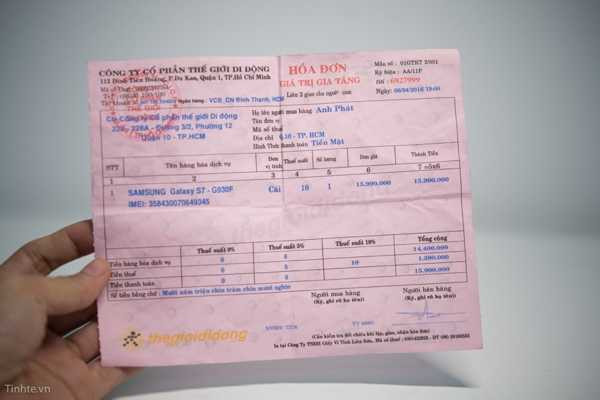 CÔNG TY CỔ PHẦN THẾ GIỚI DI ĐỘNG
HÓA ĐƠN
GIÁ TRỊ GIA TĂNG
Liên 2 giao cho người mua
Mẫu số : 01GTKT 2/001
Ký hiệu : AA/11P
Số : 6927999
Ngày: 06/04/2016
Ngân hàng : VCB_CN Bình Thạnh, HCM
Cn Công ty Cổ phần thế giới Di động
Đường 3/2, Phường 12
Quận 10 - TP.HCM
Họ tên người mua hàng Anh Phát
Tên đơn vị
Mã số thuế
Địa chỉ Q.10 - TP. HCM
Hình Thức thanh toán Tiền Mặt
STT Tên hàng hóa dịch vụ Đơn vị tính Thuế suất Số lượng Đơn giá Thành Tiền
1 2 3 4 5 6
1 SAMSUNG Galaxy S7 - G930F Cái 10 1 15.990.000 15.990.000
IMEI: 358430070649345
Thuế suất 0% Thuế suất 5% Thuế suất 10% Tổng cộng
Tiền hàng hóa dịch vụ 0 0
Tiền thuế 0 0 10
Tiền thanh toán 0 0 15.990.000
Số tiền bằng chữ : Mười năm triệu chín trăm chín mươi nghìn
Người mua hàng
(Ký, ghi rõ họ tên)
Người bán hàng
(Ký, ghi rõ họ tên)
thegioididong
(Cần kiểm tra đối chiếu khi lập, giao, nhận hóa đơn)
Tinhte.vn